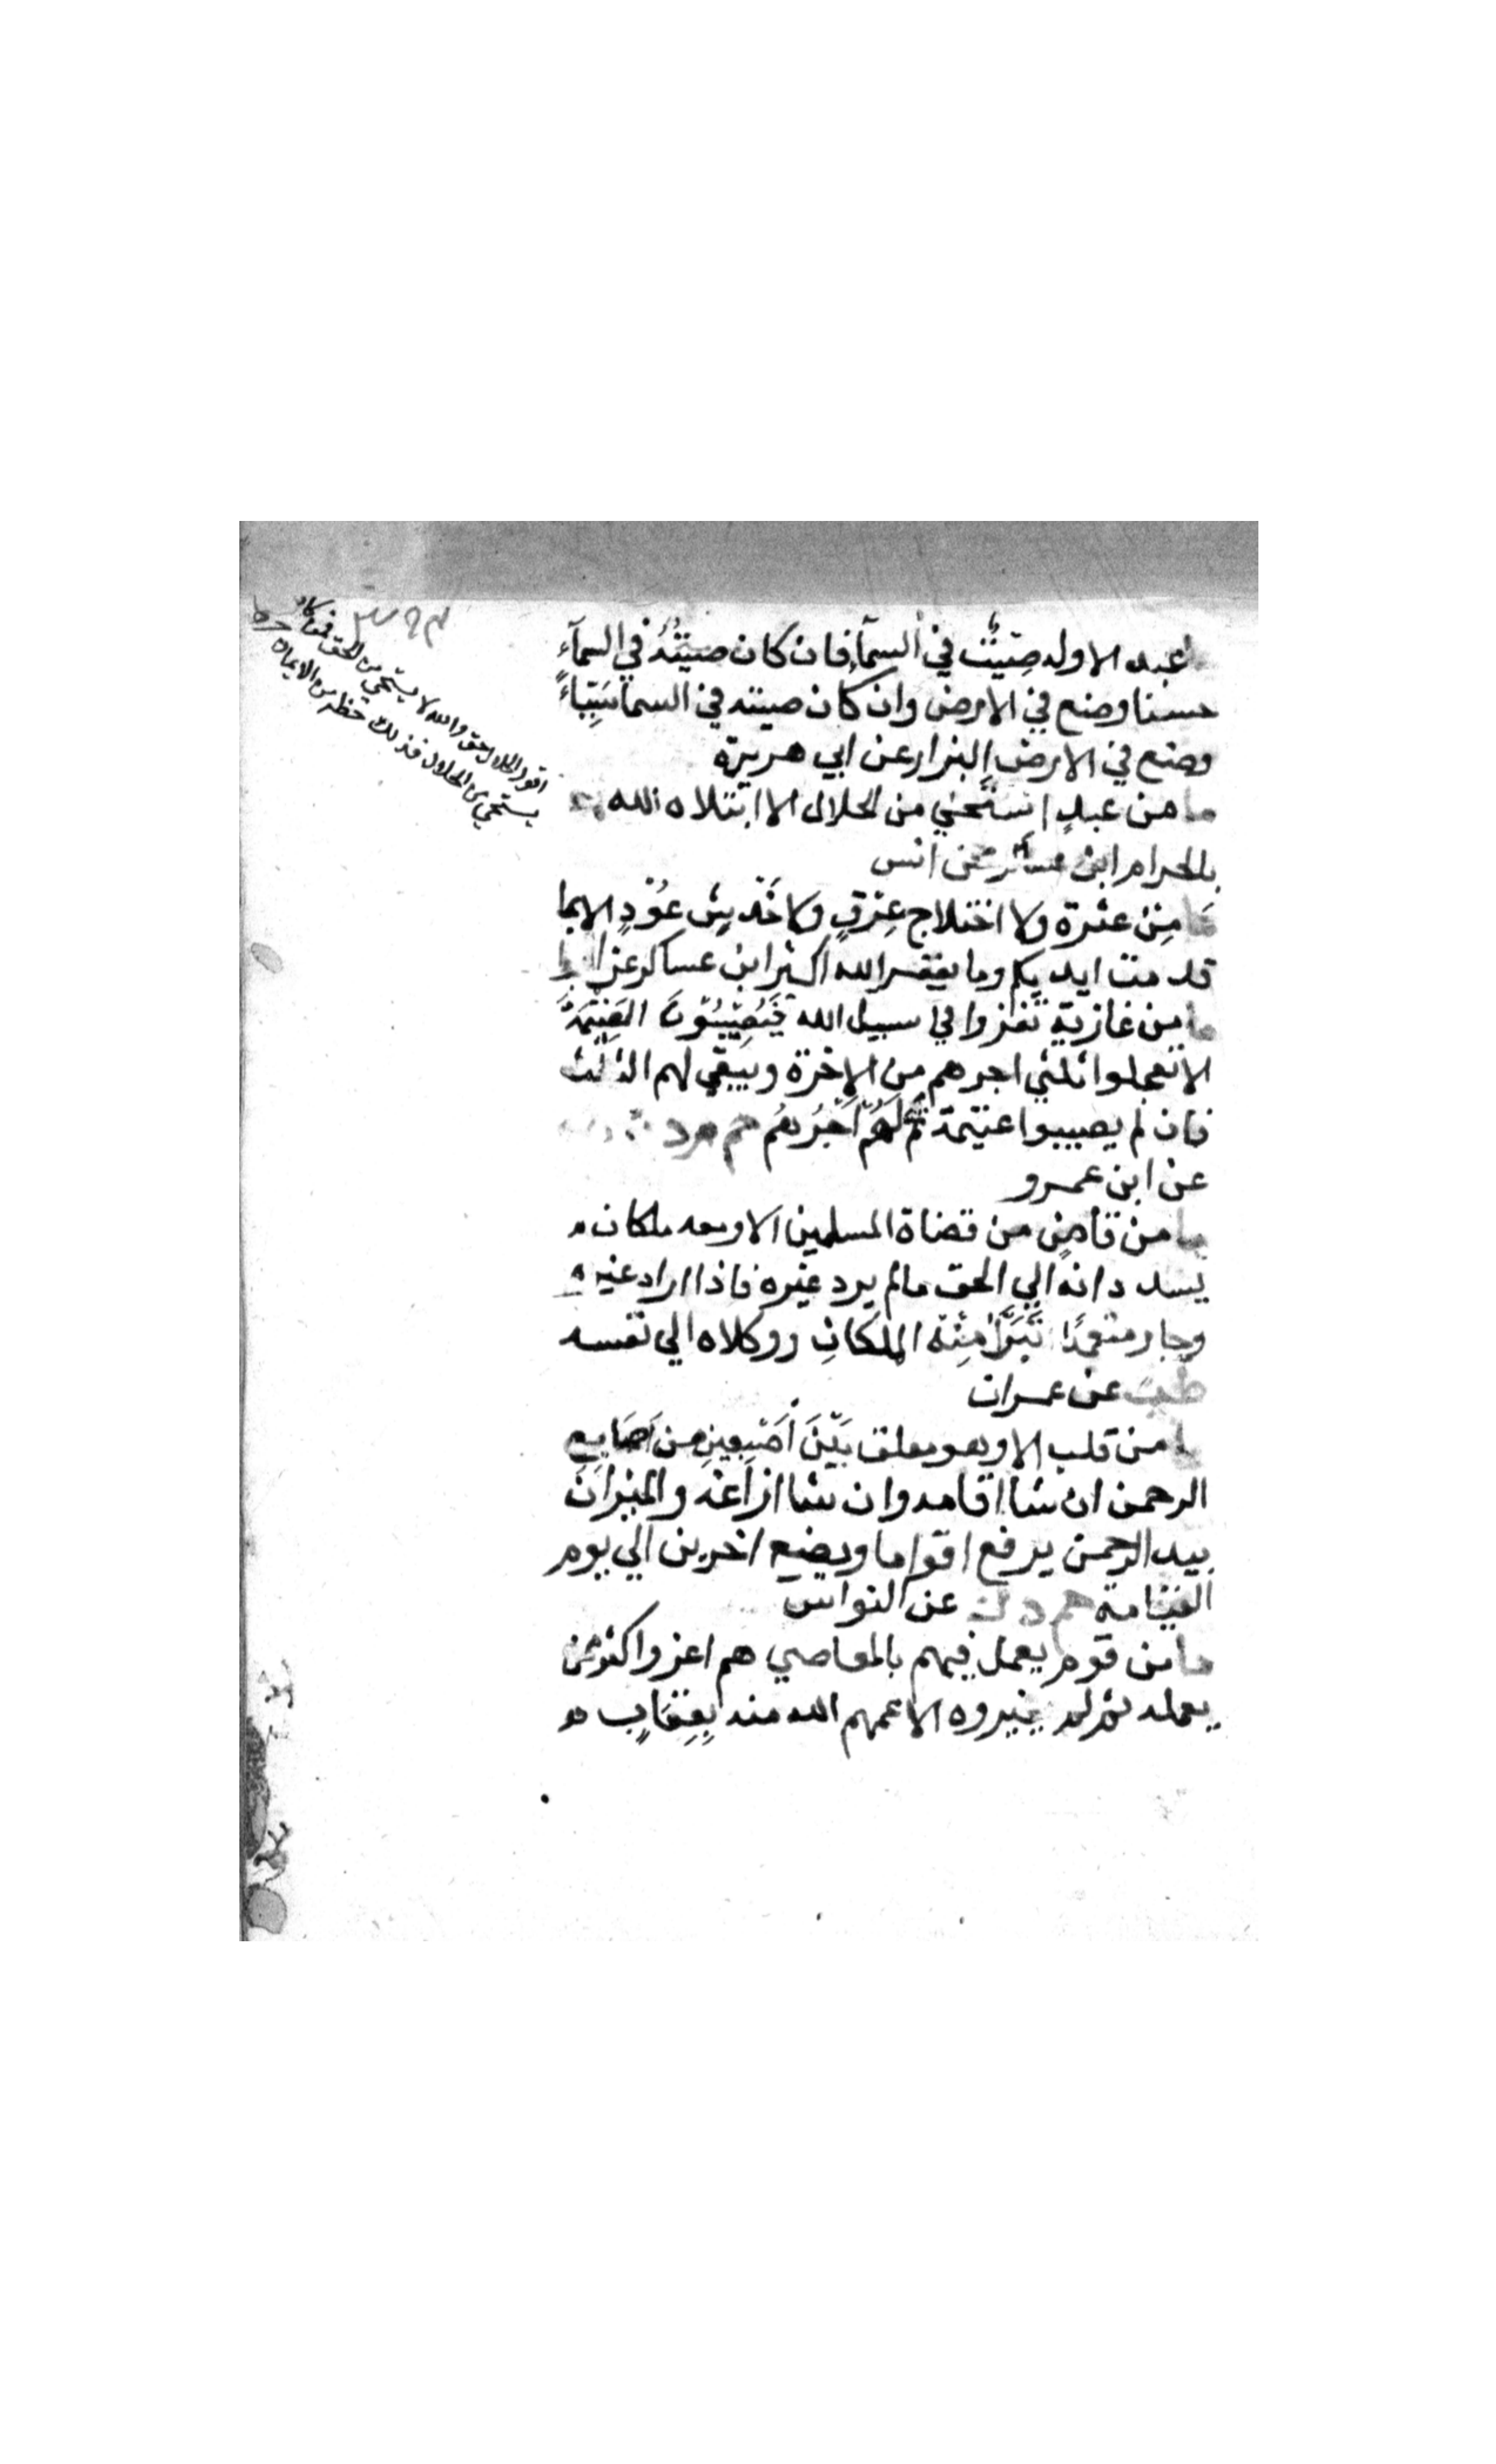 عبد الا وله صِيْتٌ في السمآء فان كان صِيْتُهُ في السمآءِ
حسنا وضع في الارض وان كان صيته في السما سَيِّئاً
وضع في الارض البزار عن ابي هريرة
ما من عبدٍ استحيى من الحلال الا ابتلاه الله
بالحرام ابن عساكر عن انس
مَا مِنْ عثرة ولا اختلاج عِرْقٍ ولا خَدْشِ عُوْدٍ الا بما
قدمت ايديكم وما يغفر الله اكثر ابن عساكر عن
ما من غازية تغزوا في سبيل الله فَيُصِيْبُوْنَ الغَنِيْمَةَ
الا تعجلوا ثلثي اجرهم مِن الاخرة ويبقي لهم الثلث
فان لم يصيبوا غنيمة تم لَهُمْ اَجْرُهُمْ حم م د
عن ابن عمرو
ما من قاضٍ من قضاة المسلمين الا ومعه ملكان
يسددانه الي الحق مالم يرد غيره فاذا اراد غيره
وجار متعمدًا تَبَرَّأ مِنْهُ الملكانِ ووكلاه الي نفسه
طب عن عمران
ما من قلب الا وهو معلق بَيْنَ اَصْبِعينِ من اَصَابِعِ
الرحمن ان شا اقامه وان شا ازاغه والميزان
بيد الرحمن يرفع اقواما ويضع اخرين الي يوم
القيامة حم ه ك عن النواس
ما من قوم يعمل فيهم بالمعاصي هم اعز واكثر ممن
يعمله ثم لم يغيروه الا عمهم الله منه بِعِقَابٍ
والله لا يستحي من الحق فمن كان
يستحي من الحلال فذلك حظه من الايمان